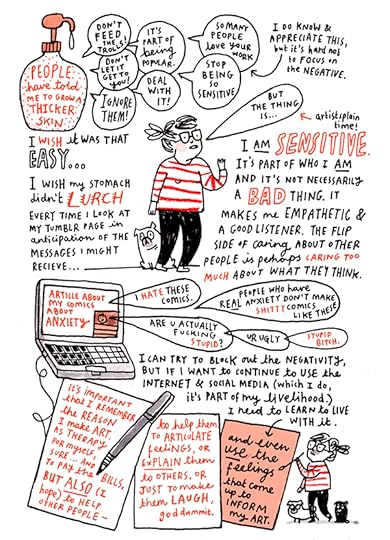 DON'T
FEED
the
TROLLS!
IT'S
PART of
being
POPULAR.
SO MANY
PEOPLE
love your
WORK
I DO KNOW &
APPRECIATE THIS,
but it's hard not
to FOCUS on
the NEGATIVE.
DON'T
LET IT
GET TO
YOU!
DEAL
WITH
IT!
STOP
BEING
SO
SENSITIVE
IGNORE
THEM!
PEOPLE
have told
ME TO GROW A
THICKER
SKIN.
BUT
THE THING
IS...
artistsplain
time!
I WISH it WAS THAT
EASY...
I WISH my STOMACH
didn't LURCH
EVERY TIME I LOOK AT
MY TUMBLR PAGE in
anticipation OF THE
MESSAGES I MIGHT
RECIEVE...
I AM SENSITIVE.
IT'S PART OF WHO I AM
AND IT'S NOT NECESSARILY
A BAD THING. IT
MAKES ME EMPATHETIC &
A GOOD LISTENER. THE FLIP
SIDE OF CARING ABOUT OTHER
PEOPLE is perhaps CARING TOO
MUCH ABOUT WHAT THEY THINK.
ARTICLE ABOUT
MY COMICS
ABOUT
ANXIETY
I HATE THESE
COMICS.
PEOPLE WHO HAVE
REAL ANXIETY DON'T MAKE
SHITTY COMICS
LIKE THESE
ARE U ACTUALLY
FUCKING
STUPID?
UR UGLY
STUPID
BITCH.
I CAN TRY to BLOCK out the NEGATIVITY,
BUT IF I WANT to CONTINUE to USE the
INTERNET & SOCIAL MEDIA (which I do,
it's PART of my livelihood.)
I need to LEARN to LIVE
WITH it.
IT'S important
that I REMEMBER
the REASON
I MAKE ART.
AS THERAPY
FOR myself,
SURE... AND
to PAY the BILLS,
BUT ALSO (I
hope) to HELP
OTHER PEOPLE -
to help them
to ARTICULATE
FEELINGS, OR
EXPLAIN them
to OTHERS, OR
JUST to MAKE
them LAUGH,
goddammit.
and even
USE the
feelings
that come
up to
INFORM
my ART.